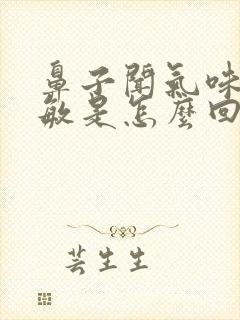 鼻子聞氣味
敏是怎麼回
芸生生